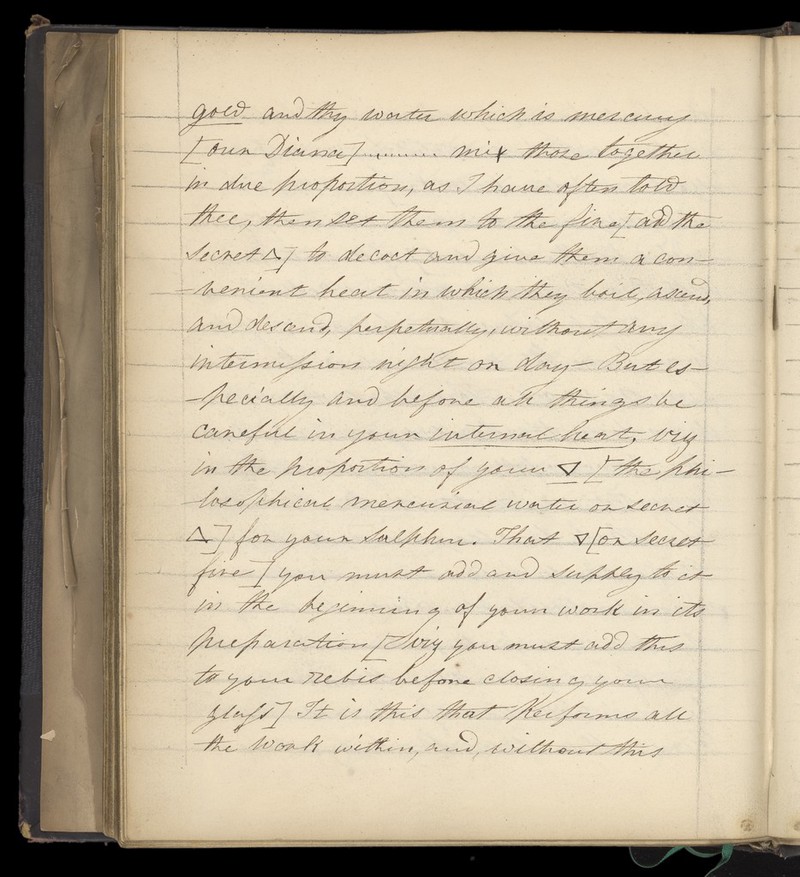 gold and thy water which is mercury
[our Diana] ......... mix those together
in due proportion, as I have often told
thee, then set them to the fire [add the
secret △] to decoct and give them a con-
-venient heat in which they boil, ascend,
and descend, perpetually, without any
intermission night or day - But es-
-pecially and before all things be
careful in your internal heat, viz
in the proportion of your ▽ [the phi-
-losophical mercurial water or secret
△] for your sulphur. That ▽ [or secret
fire] you must add and supply to it
in the beginning of your work in its
preparation [viz you must add this
to your rebis before closing your
glass] It is this that performs all
the work within, and, without this